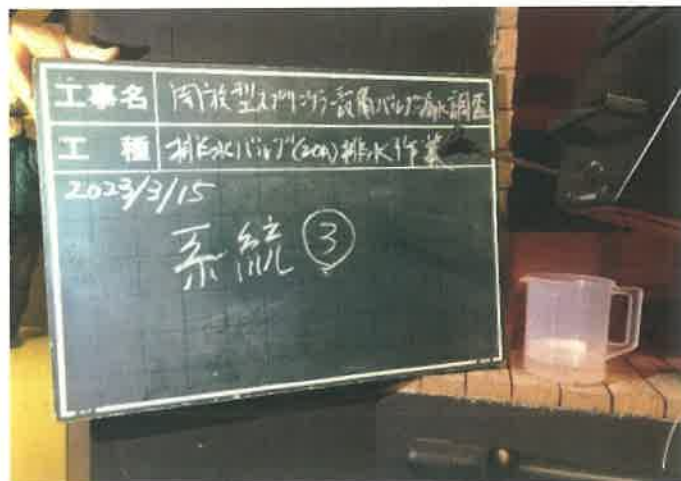 工事名 開放型スプリンクラー設備バルブ漏水調査
工種 排水バルブ(20A)排水作業
2023/3/15
系統③